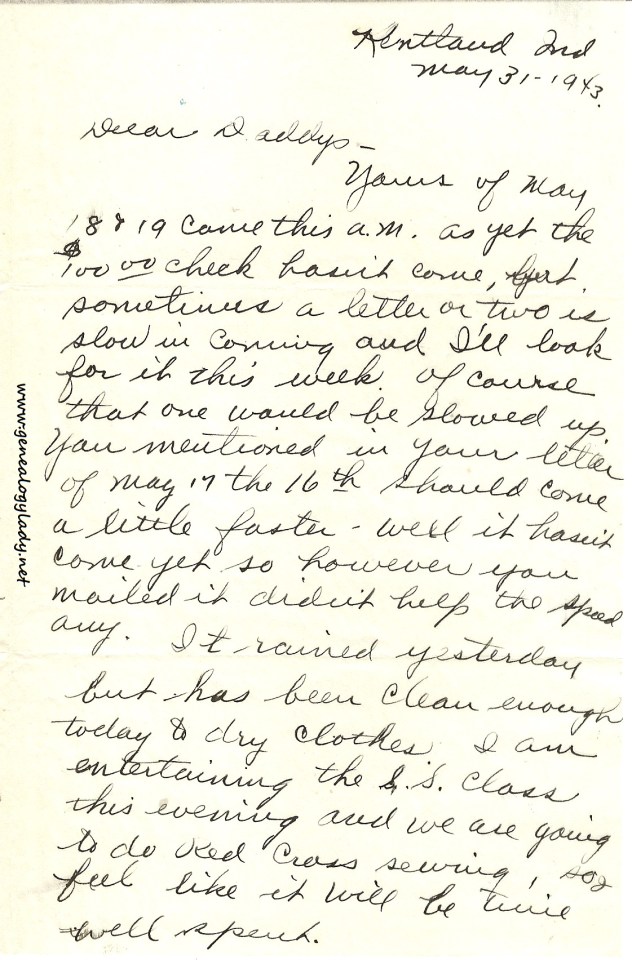 Kentland Ind
May 31-1943.
Dear Daddy-
Yours of May
18 & 19 came this a.m. as yet the
$100 00 check hasn't come, but
sometimes a letter or two is
slow in coming and I'll look
for it this week. Of course
that one would be slowed up.
You mentioned in your letter
of May 17 the 16th should come
a little faster - well it hasn't
come yet so however you
mailed it didn't help the speed
any. It rained yesterday
but has been clear enough
today to dry clothes. I am
entertaining the S.S. class
this evening and we are going
to do Red Cross sewing, so I
feel like it will be time
well spent.
www.genealogylady.net